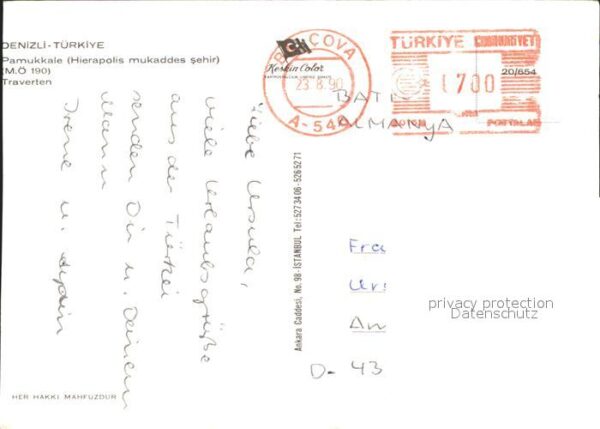 DENİZLİ-TÜRKİYE
Pamukkale (Hierapolis mukaddes şehir)
(M.Ö 190)
Traverten
Keskin Color
23.8.90
A-544
TÜRKİYE CUMHURİYETİ
1700
20/654
POSTALAR
ALMANYA
Liebe Ursula,
viele Urlaubsgrüße
aus der Türkei
senden Dir u. Deinem
Mann
Irene u. Aydin
Ankara Caddesi, No. 98-İSTANBUL Tel: 5273406-5265271
Fra
Urs
Am
D- 43
privacy protection
Datenschutz
HER HAKKI MAHFUZDUR